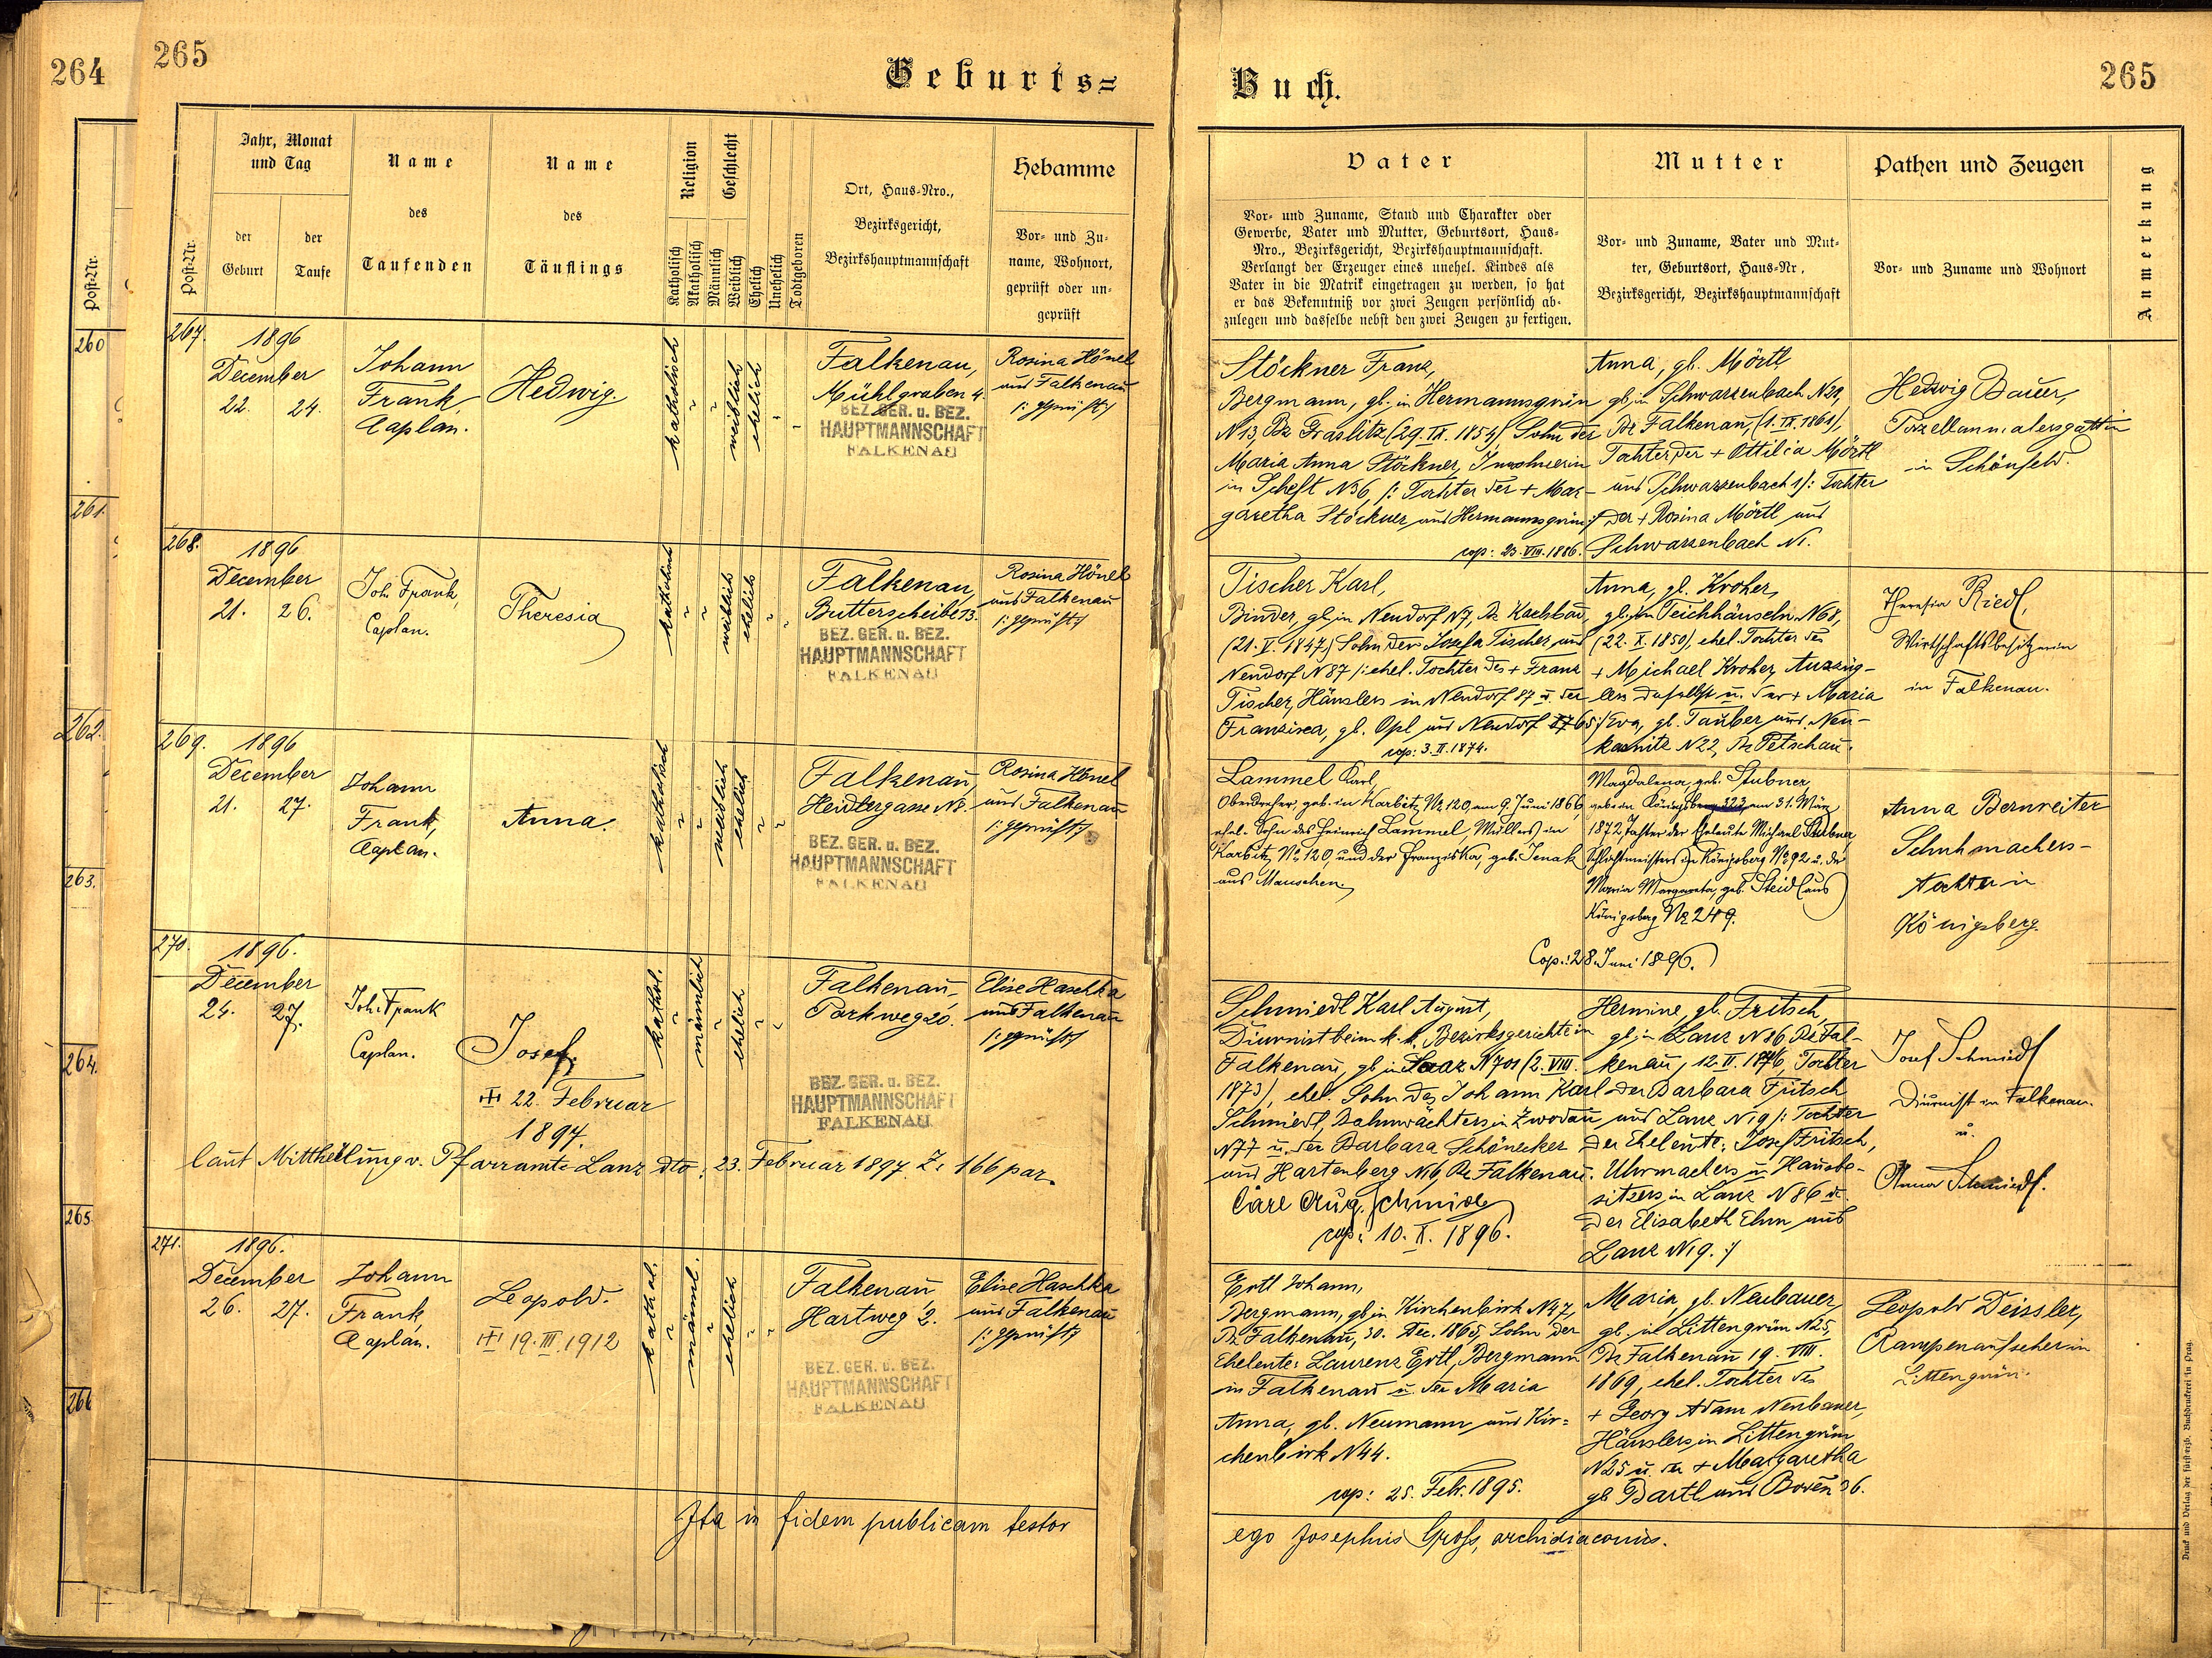 264
265
Geburts=
Buch.
265
Post-Nr.
260
261.
262.
263.
264.
265.
266
Post-Nr.
Jahr, Monat
und Tag
der
Geburt
der
Taufe
Name
des
Taufenden
Name
des
Täuflings
Religion
Geschlecht
Katholisch
Akatholisch
Männlich
Weiblich
Ehelich
Unehelich
Todtgeboren
Ort, Haus-Nro.,
Bezirksgericht,
Bezirkshauptmannschaft
Hebamme
Vor- und Zu-
name, Wohnort,
geprüft oder un-
geprüft
Vater
Vor- und Zuname, Stand und Charakter oder
Gewerbe, Vater und Mutter, Geburtsort, Haus-
Nro., Bezirksgericht, Bezirkshauptmannschaft.
Verlangt der Erzeuger eines unehel. Kindes als
Vater in die Matrik eingetragen zu werden, so hat
er das Bekenntniß vor zwei Zeugen persönlich ab-
zulegen und dasselbe nebst den zwei Zeugen zu fertigen.
Mutter
Vor- und Zuname, Vater und Mut-
ter, Geburtsort, Haus-Nr.,
Bezirksgericht, Bezirkshauptmannschaft
Pathen und Zeugen
Vor- und Zuname und Wohnort
Anmerkung
267.
1896
December
22. 24.
Johann
Frank,
Caplan.
Hedwig.
katholisch
weiblich
ehelich
Falkenau,
Mühlgraben 4.
BEZ. GER. u. BEZ.
HAUPTMANNSCHAFT
FALKENAU
Rosina Hönel
aus Falkenau
/: geprüft :/
Stöckner Franz,
Bergmann, gb. in Hermannsgrün
N 13, Bz. Graslitz (29. IX. 1854), Sohn der
Maria Anna Stöckner, Inwohnerin
in Scheft N36, /: Tochter der + Mar-
garetha Stöckner aus Hermannsgrün :/
cop: 23. VIII. 1886.
Anna, gb. Mörtl
gb. in Schwarzenbach N29,
Bz. Falkenau, (1. IX. 1861),
Tochter der + Ottilia Mörtl
aus Schwarzenbach 1 /: Tochter
der + Rosina Mörtl aus
Schwarzenbach N1.
Hedwig Bauer,
Porzellanmalersgattin
in Schönfeld.
268.
1896
December
21. 26.
Joh. Frank,
Caplan.
Theresia
katholisch
weiblich
ehelich
Falkenau,
Butterscheibe 13.
BEZ. GER. u. BEZ.
HAUPTMANNSCHAFT
FALKENAU
Rosina Hönel
aus Falkenau
/: geprüft :/
Tischer Karl,
Binder, gb. in Neudorf N7, Bz.
(21. V. 1847) Sohn der Josefa Tischer aus
Neudorf N87 /: ehel. Tochter des + Franz
Tischer, Häuslers in Neudorf 87 u. der
Franzisca, gb. Opl aus Neudorf 65 :/
cop: 3. II. 1874.
Anna, gb. Kroher,
gb. in Teichhäuseln N68,
(22. X. 1850), ehel. Tochter des
+ Michael Kroher, Auszüg-
lers daselbst u. der + Maria
Eva, gb. Tauber aus Neu-
kaunitz N22, Bz. Petschau.
Theresia Riedl,
Wirtschaftsbesitzerin
in Falkenau.
269.
1896
December
21. 27.
Johann
Frank,
Caplan.
Anna.
katholisch
weiblich
ehelich
Falkenau,
Heidlergasse N8.
BEZ. GER. u. BEZ.
HAUPTMANNSCHAFT
FALKENAU
Rosina Hönel
aus Falkenau
/: geprüft :/
Lammel Karl,
Oberdreher, geb. in Karbitz, Nr. 120, am 9. Juni 1866,
ehel. Sohn des Heinrich Lammel, Müllers in
Karbitz, No. 120, und der Franziska, geb. Jenak
aus Mauschen.
Magdalena, geb. Stubner,
geb. in Königsberg 323, am 31. März
1872, Tochter der Eheleute Michael Stubner,
Schichtmeisters in Königsberg No. 92 u. der
Maria Margareta, geb. Steidl aus
Königsberg Nr. 249.
Cop.: 28. Juni 1896.
Anna Bernreiter
Schuhmachers-
tochter in
Königsberg.
270.
1896.
December
24. 27.
Joh. Frank
Caplan.
Josef.
22. Februar
1897.
laut Mittheilung v. Pfarramte Lanz dto: 23. Februar 1897 Z. 166 par.
kathol.
männlich
ehelich
Falkenau,
Parkweg 20.
BEZ. GER. u. BEZ.
HAUPTMANNSCHAFT
FALKENAU
Elise Haschka
aus Falkenau
/: geprüft :/
Schmiedl Karl August,
Diurnist beim k. k. Bezirksgerichte in
Falkenau, gb. in Saaz N701 (2. VIII.
1873), ehel. Sohn des Johann Karl
Schmiedl, Bahnwächters in Zwodau
N77 u. der Barbara Schönecker
aus Hartenberg N6, Bz. Falkenau.
Carl Aug. Schmiedl
cop: 10. X. 1896.
Hermine, gb. Fritsch,
gb. in Lanz N86 Bz. Fal-
kenau, 12. II. 1876, Tochter
der Barbara Fritsch
aus Lanz N19 /: Tochter
der Eheleute: Josef Fritsch,
Uhrmachers u. Hausbe-
sitzers in Lanz N86 u.
der Elisabeth Ehm aus
Lanz N19. :/
Josef Schmiedl
Diurnist in Falkenau.
u.
Anna Schmiedl.
271.
1896.
December
26. 27.
Johann
Frank,
Caplan.
Leopold.
19. III. 1912
kathol.
männl.
ehelich
Falkenau
Hartweg 2.
BEZ. GER. u. BEZ.
HAUPTMANNSCHAFT
FALKENAU
Elise Haschka
aus Falkenau
/: geprüft :/
Ertl Johann,
Bergmann, gb. in Kirchenbirk N47,
Bz. Falkenau, 30. Dec. 1865, Sohn der
Eheleute: Laurenz Ertl, Bergmann
in Falkenau u. der Maria
Anna, gb. Neumann aus Kir=
chenbirk N44.
cop: 25. Feb. 1895.
Maria, gb. Neubauer,
gb. in Littengrün N25,
Bz. Falkenau 19. VIII.
1869, ehel. Tochter des
+ Georg Adam Neubauer,
Häuslers in Littengrün
N25 u. der + Margaretha
gb. Bartl aus 36.
Leopold Deissler,
Rampenaufseher in
Littengrün.
Ita in fidem publicam testor
ego Josephus Groß, archidiaconus.
Druck und Verlag der fürst-erzb. Buchdruckerei in Prag.